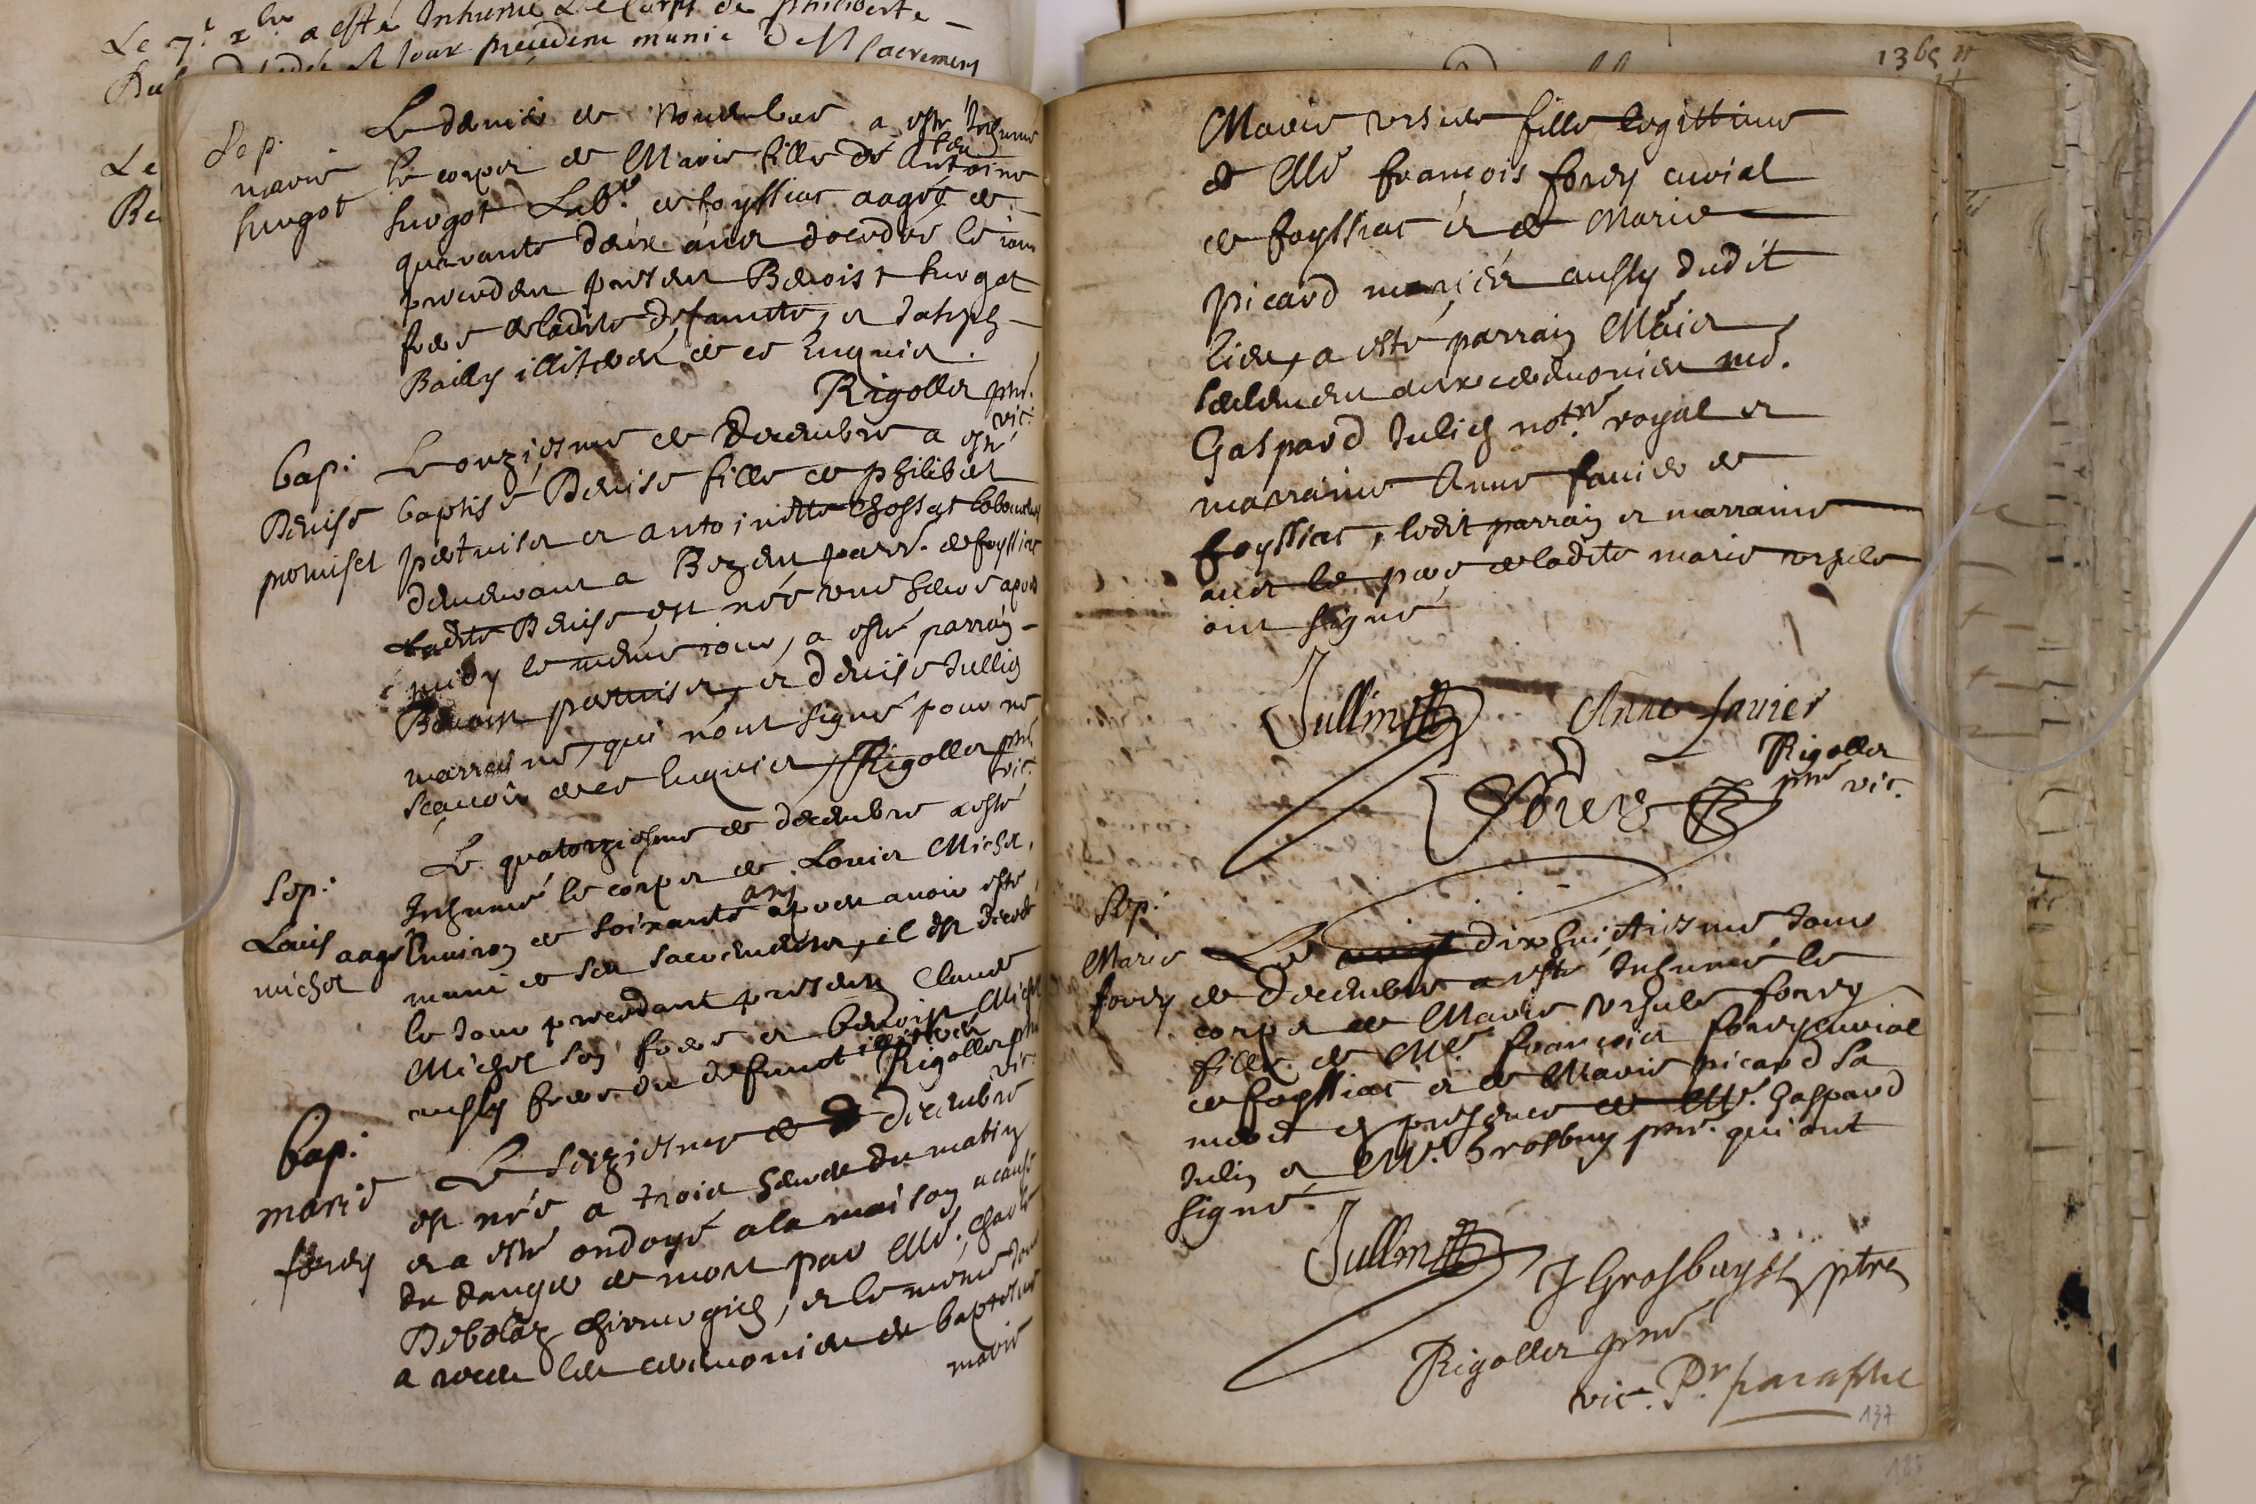 Le 7.e xbre a esté Inhumé Le Corps de philiberte
le jour precedent munie des sacremens
Sep.
marie
hugot
Le dernier de Novembre a esté Inhumé
le corps de Marie fille de feu Antoine
hugot Lab.r de foyssiat aagée de
quarante deux ans decedée le jour
precedent presens Benoist hugot
frere de ladite defuncte, et Joseph
Bailly illiterés de ce Enquis.
Rigollet ptre
vic.
bap:
Denise
pertuiset
Le onziesme de Decembre a esté
baptisé Denise fille de philibert
pertuiset et antoinette Chossat
demeurant a Bezen parr. de foyssiat
ladite Denise est née une heure apres
midy le même jour, a esté parrain
Benoist pertuiset, et denise Jullin
marraine, qui n'ont signé pour ne
sçavoir de ce Enquis, Rigollet ptre
vic.
Sep:
Louis
michel
Le quatorziesme de decembre a esté
Inhumé le corps de Louis Michel,
aagé Environ de soixante ans apres avoir esté
muni de ses sacremens, il est decedé
le Jour precedant presens Claude
Michel son frere et benoist Michel
aussy frere du defunct illiterés Rigollet ptre
vic
bap:
marie
forey
Le seziesme de Decembre
est née a trois heures du matin
et a esté ondoyé a la maison a cause
du danger de mort par Me. Charle
Debolaz chirurgien, et le même Jour
a receu les ceremonies du baptesme
marie
136 11
Marie ursule fille legittime
de Me françois forey curial
de foyssiat et de Marie
Picard mariés aussy dudit
lieu, a esté parrain
seulement aux ceremonies me.
Gaspard Julien not.re royal et
marraine Anne favier de
foyssiat, ledit parrain et marraine
avec le pere de ladite marie ursule
ont signé
Jullin Anne favier
Forey Rigollet
ptre vic.
Sep:
Marie
forey
Le dixhuictiesme Jour
de Decembre a esté Inhumé le
corps de Marie ursule forey
fille de Me. françois forey curial
de foyssiat et de Marie picard sa
en presence de Me. Gaspard
Julin et Me. Grosbuy ptre. qui ont
signé.
Jullin J Grosbuyst ptre
Rigollet ptre
vic. Pr paraphe
137